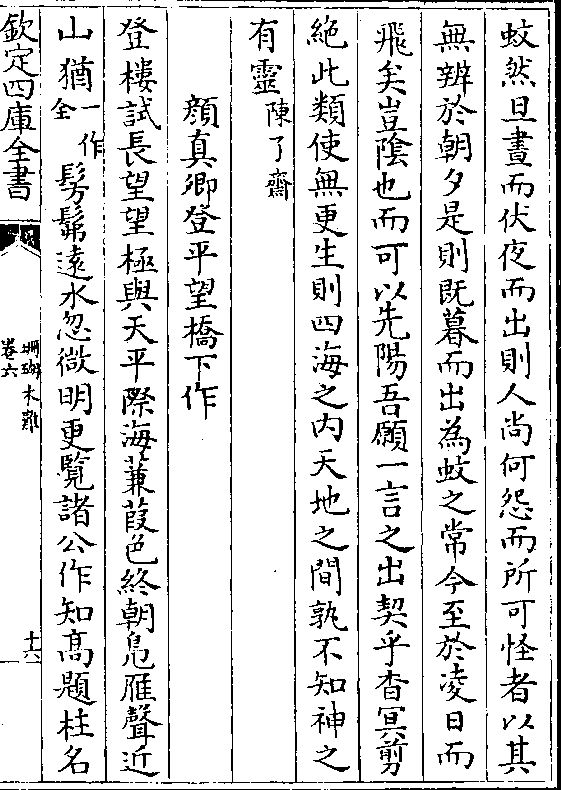 蚊然旦晝而伏夜而出則人尚何怨而所可怪者以其
無辨於朝夕是則既暮而出為蚊之常今至於凌日而
飛矣豈陰也而可以先陽吾願一言之出契乎杳冥剪
絶此類使無更生則四海之内天地之間孰不知神之
有靈陳了齋
顔真卿登平望橋下作
登樓試長望望極與天平際海蒹葭色終朝鳬雁聲近
山猶一作全髣髴遠水忽微明更覧諸公作知髙題柱名
欽定四庫全書
珊瑚木難
卷六
十六